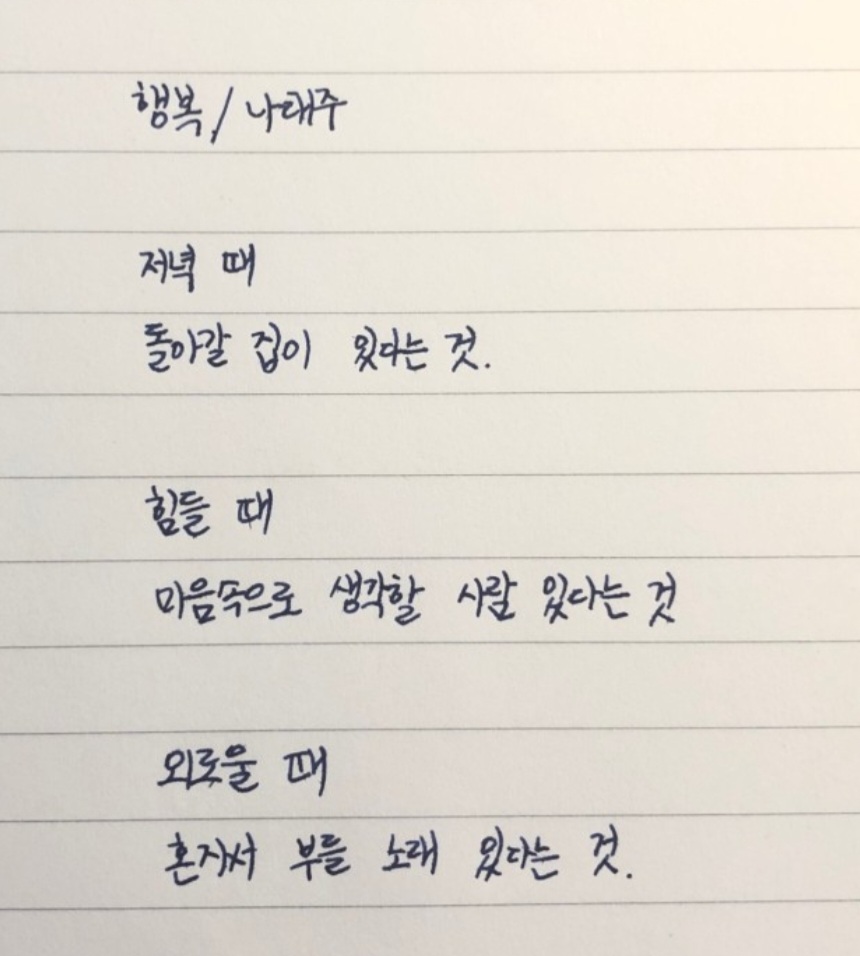 행복 / 나태주
저녁 때
돌아갈 집이 있다는 것.
힘들 때
마음속으로 생각할 사람 있다는 것
외로울 때
혼자서 부를 노래 있다는 것.